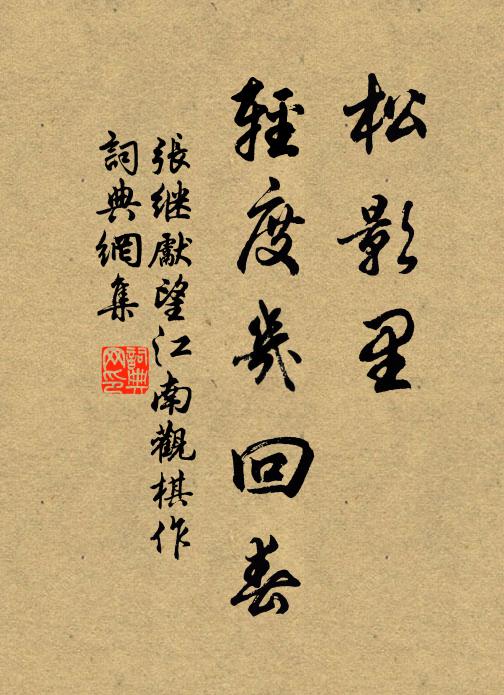 松影里
輕度幾回春
張继獻望江南觀棋作
詞典網集
詞典
网印